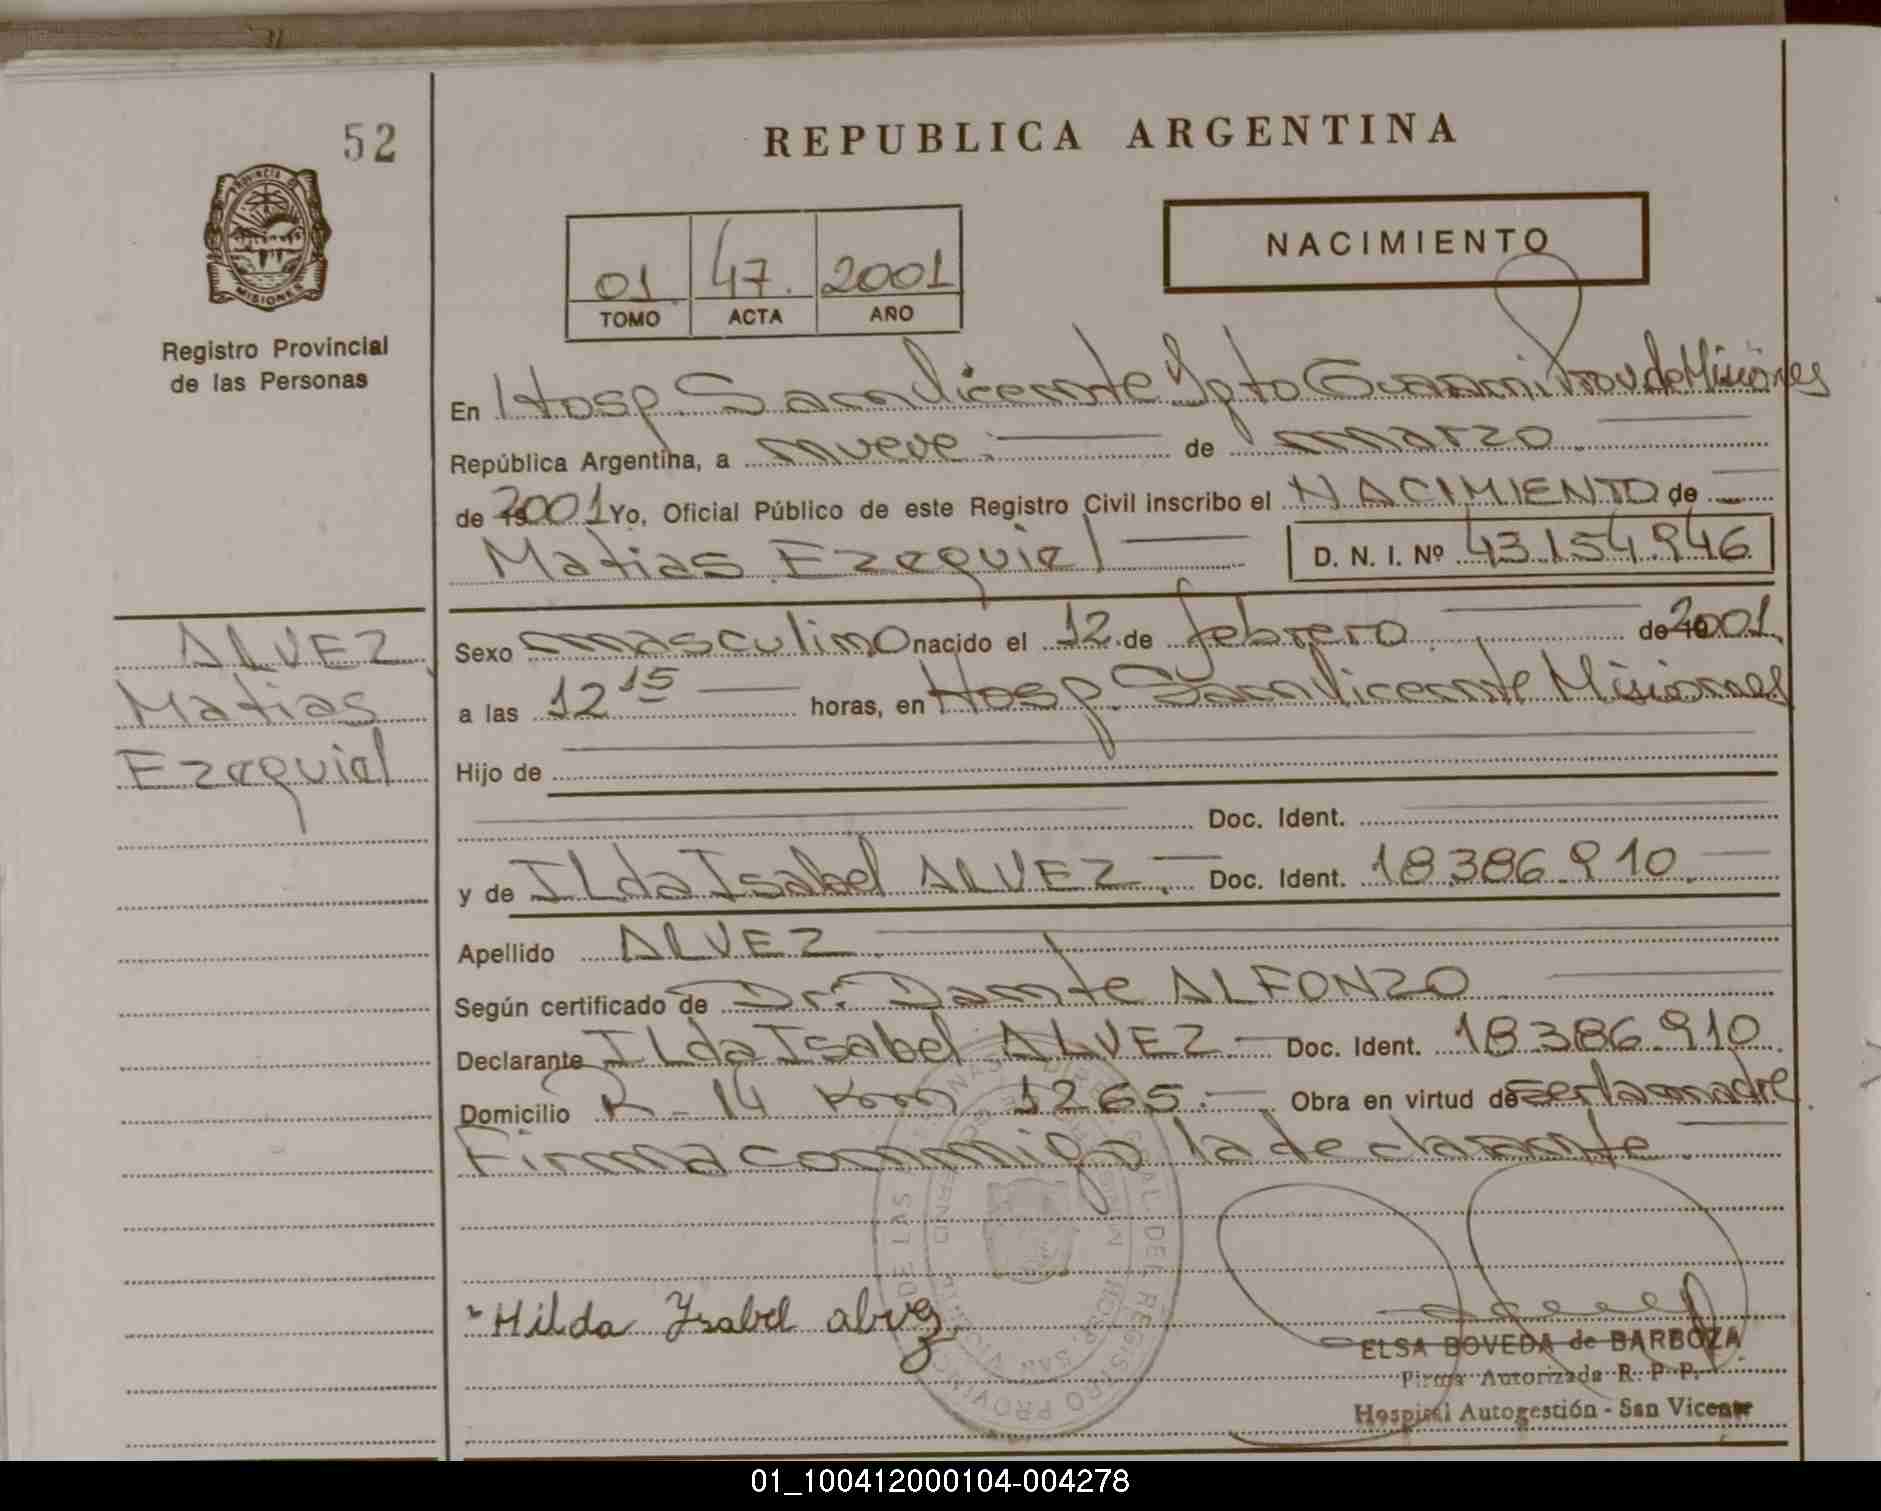 52
REPUBLICA ARGENTINA
PROVINCIA DE
MISIONES
Registro Provincial
de las Personas
01 47. 2001
TOMO ACTA AÑO
NACIMIENTO
En Hosp San Vicente Dpto Guarani Prov de Misiones
República Argentina, a nueve. de marzo
de 2001 Yo, Oficial Público de este Registro Civil inscribo el NACIMIENTO de
Matias Ezequiel D. N. I. Nº 43.154.946
ALVEZ
Matias
Ezequiel
Sexo masculino nacido el 12 de febrero de 2001
a las 12 15 horas, en Hosp. San Vicente Misiones
Hijo de
Doc. Ident.
y de ILda Isabel ALVEZ. Doc. Ident. 18.386.910
Apellido ALVEZ
Según certificado de Dr. Dante ALFONZO
Declarante ILda Isabel ALVEZ Doc. Ident. 18.386.910
Domicilio R - 14 Km 1265. Obra en virtud de ser la madre
Firma conmigo la declarante
Hilda Ysabel alvez
ELSA BOVEDA de BARBOZA
Firma Autorizada R. P. P.
Hospital Autogestión - San Vicente
01_100412000104-004278